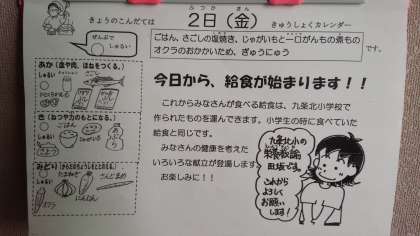 きょうのこんだては
ふつか きん
2日(金)
きゅうしょくカレンダー
ごはん、さごしの塩焼き、じゃがいもと一口がんもの煮もの
オクラのおかかいため、ぎゅうにゅう
です。
ぜんぶで
しゅるい
あか(血や肉、ほねをつくる。)
しゅるい
き(ねつや力のもとになる。)
しゅるい
ごはん
あぶら
じゃがいも
しゅるい
たまねぎ
さんどまめ
オクラ
にんじん
今日から、給食が始まります!!
これからみなさんが食べる給食は、九条北小学校で
作られたものを運んできます。小学生の時に食べていた
給食と同じです。
みなさんの健康を考えた
いろいろな献立が登場します。
お楽しみに!!
九条北小の
栄養教諭
田坂です。
これから
よろしく
お願い
します!